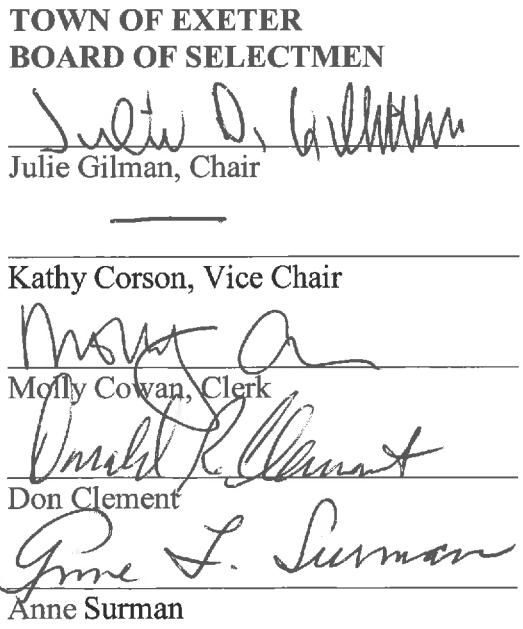 TOWN OF EXETER
BOARD OF SELECTMEN
Julie D. Gilman
Julie Gilman, Chair
Kathy Corson, Vice Chair
Molly
Molly Cowan, Clerk
Donald R. Clement
Don Clement
Anne L. Surman
Anne Surman